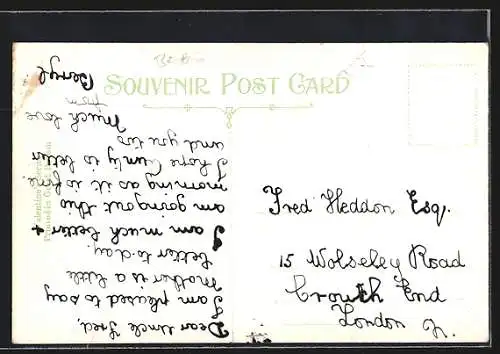 SOUVENIR POST CARD
Dear Uncle Fred,
I am pleased to say
Mother is a little
better to-day.
I am much better &
am going out this
morning as it is fine.
I hope Aunty is better
and you too
Much love
from
Beryl
Fred Heddon Esq.
15 Wolseley Road
Crouch End
London N.